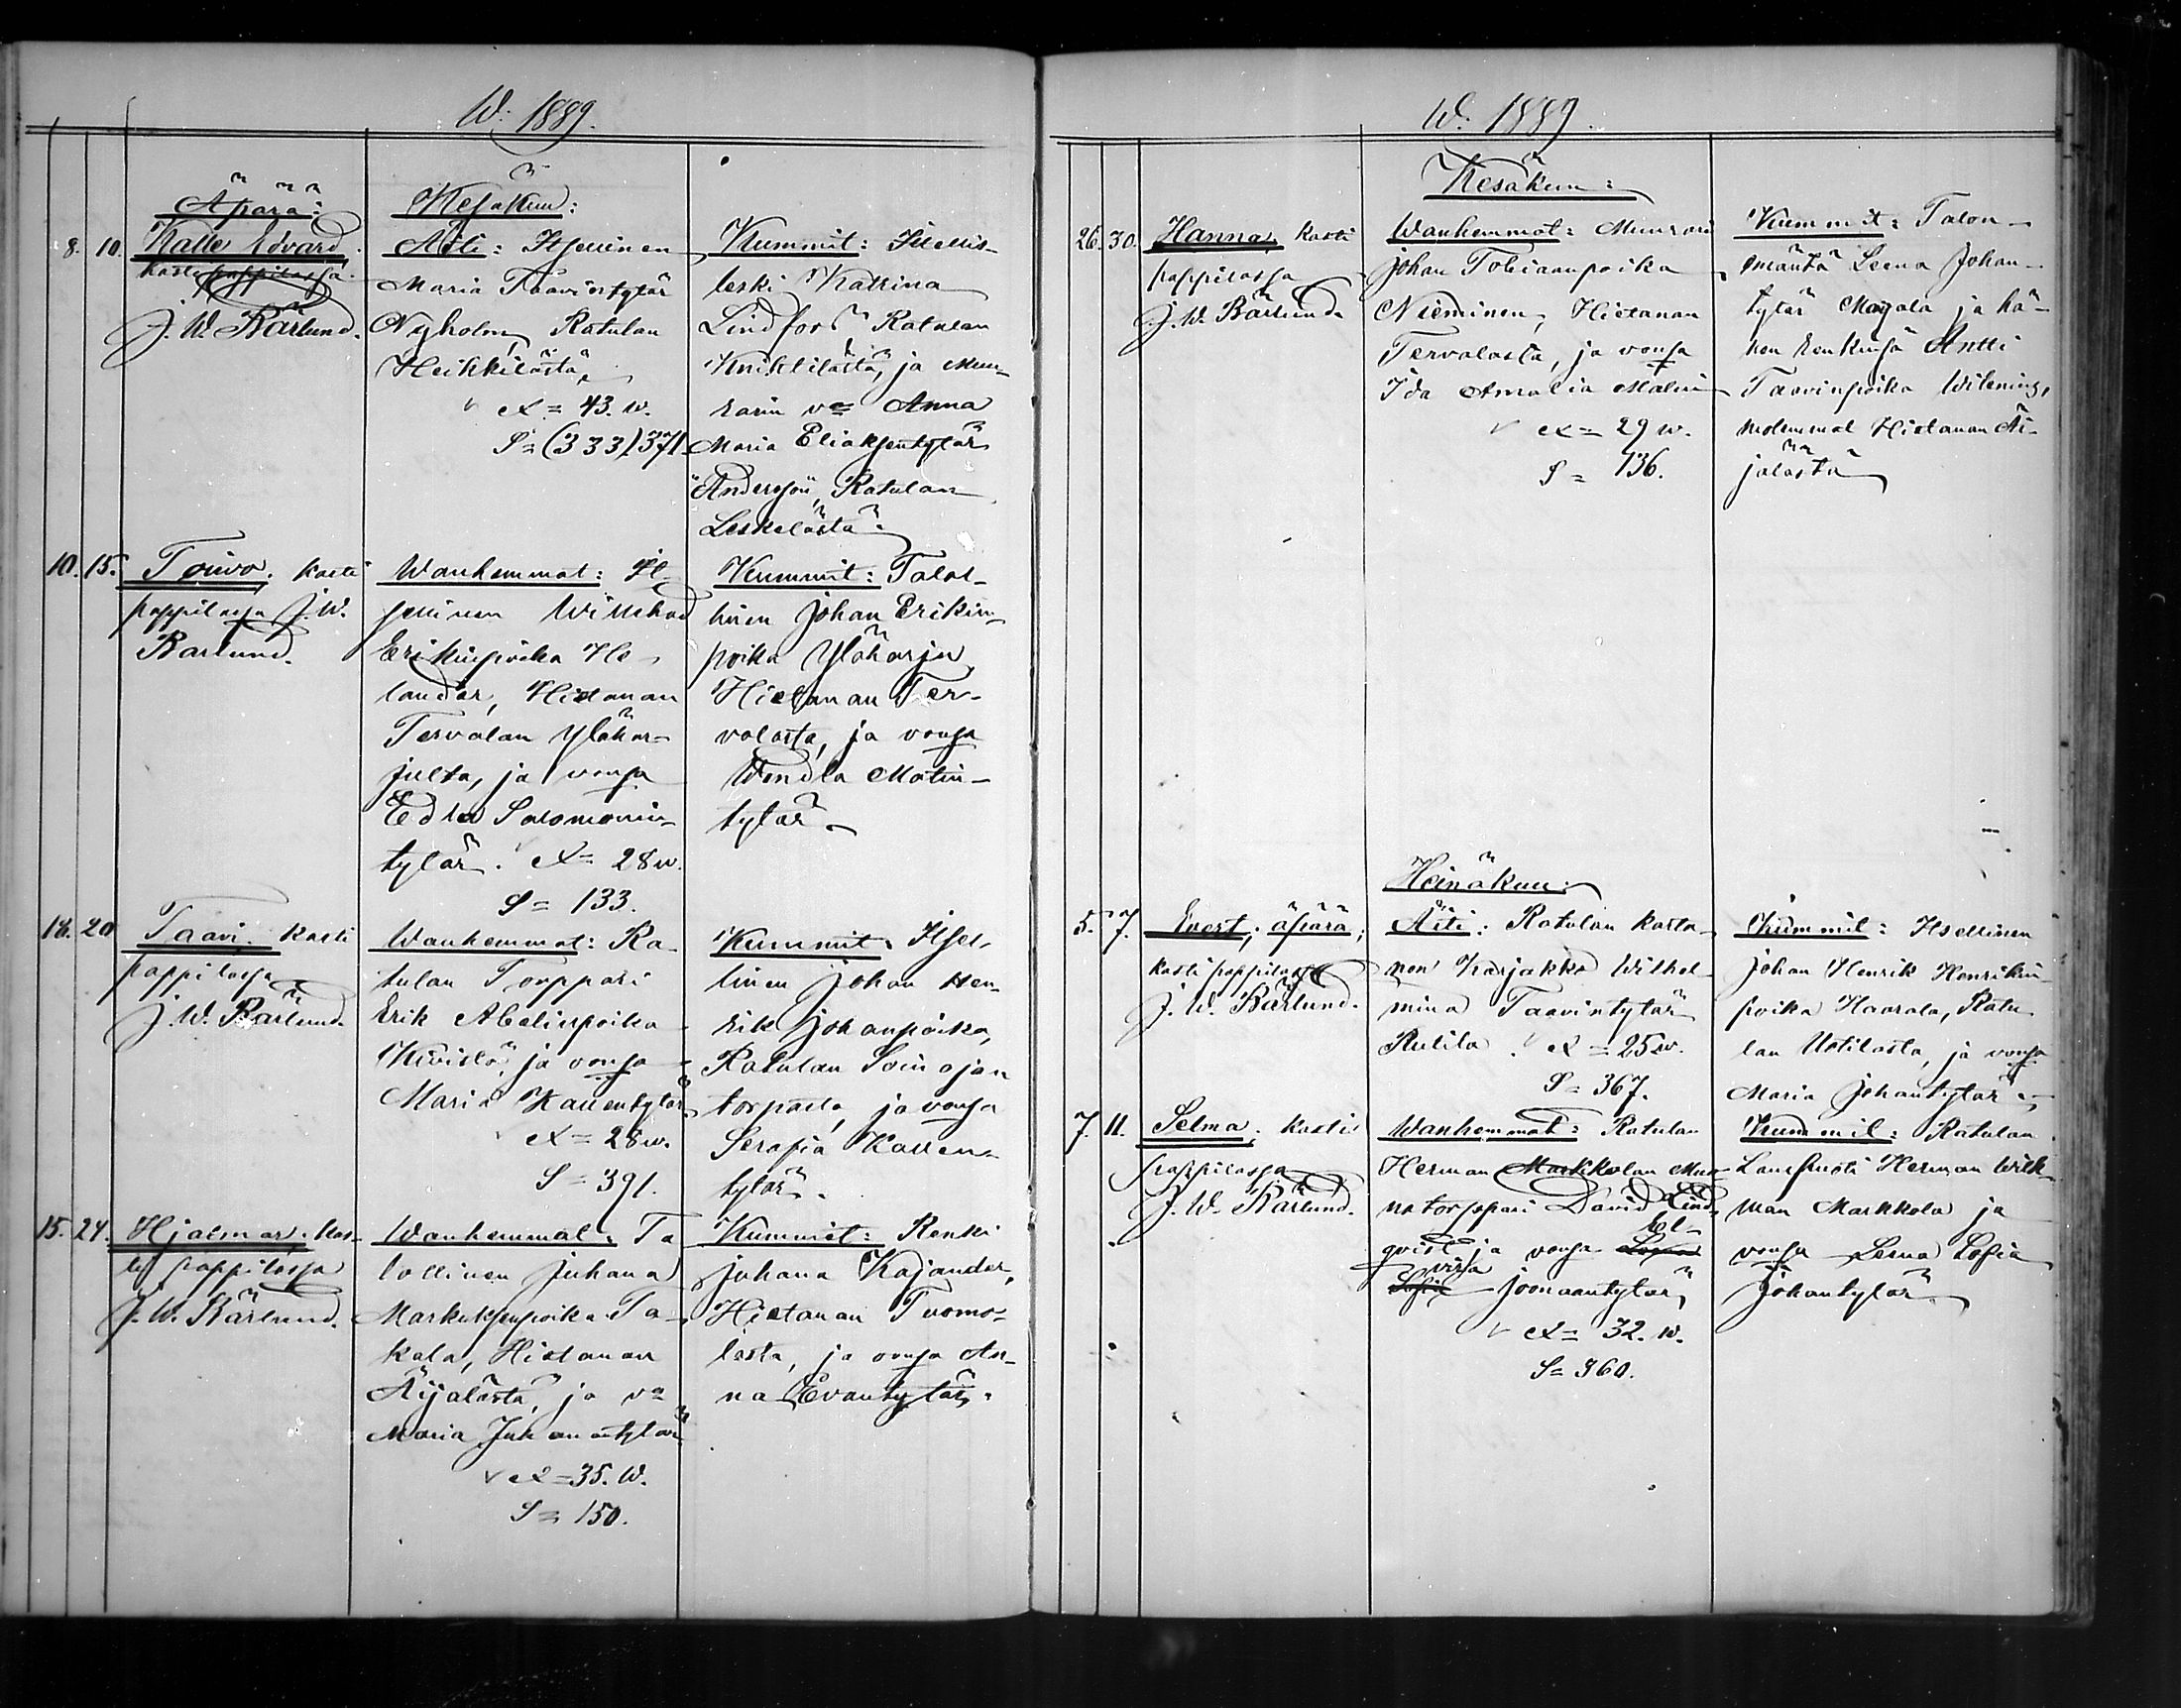 W. 1889.
Kesäkuu:
8. 10. Äpärä:
Kalle Edvard.
kasti pappilassa.
J. W. Bärlund.
Äiti: Itsellinen
Maria Taavintytär
Nyholm, Ratulan
Heikkilästä,
= 43. w.
S = (333) 371
Kummit: Itsellis-
leski Katrina
Lindfors Ratulan
Knihtilästä, ja Muu-
rarin vo Anna
Maria Eliaksentytär
Andersson, Ratulan
Leskelästä.
10. 15. Toivo. Kasti
pappilassa J. W.
Barlund.
Wanhemmat: It-
sellinen Willehad
Erikinpoika He-
lander, Hietanan
Tervalan Ylähar-
julta, ja vonsa
Edla Salomonin-
tytär. = 28 w.
S = 133.
Kummit: Talol-
linen Johan Erikin-
poika Yläharju
Hietanan Ter-
valasta, ja vonsa
Wendla Matin-
tytär.
14. 20 Taavi. Kasti
pappilassa
J. W. Bärlund.
Wanhemmat: Ra-
tulan Torppari
Erik Abelinpoika
Kuisla, ja vonsa
Maria Kallentytär
= 28 w.
S = 391.
Kummit: Itsel-
linen Johan Hen-
rik Johanpoika,
Ratulan Soinojan
torpasta, ja vonsa
Serafia Kallen-
tytär.
15. 24. Hjalmar; kas-
ti pappilassa
J. W. Bärlund.
Wanhemmat: Ta
lollinen Juhana
Markuksenpoika Ta-
kala, Hietanan
Äijälästä, ja vo
Maria Juhanantytär
= 35. w.
S = 150.
Kummit: Renki
Juhana Kajander,
Hietanan Tuomo-
lasta, ja vonsa An-
na Evantytär.
W. 1889.
Kesäkuu:
26. 30. Hanna, Kasti
pappilassa
J. W. Bärlund
Wanhemmat: Muurari
Johan Tobiaanpoika
Nieminen, Hietanan
Tervalasta, ja vonsa
Ida Amalia Malin
= 29 w.
S = 136.
Kummit: Talon-
emäntä Leena Johan-
tytär Mayala ja hä-
nen renkinsä Antti
Taavinpoika Wilening,
molemmat Hietanan Äi-
jälästä
Heinäkuu:
5. 7. Enest; äpärä;
kasti pappilassa
J. W. Bärlund.
Äiti: Ratulan karta-
non Karjakko Wilhel-
mina Taavintytär
Rulila. = 25 w.
S = 367.
Kummit: Itsellinen
Johan Henrik Henrikin-
poika Haarala, Ratu
lan Uotilasta, ja vonsa
Maria Johantytär.
7. 11. Selma, kasti
pappilassa
J. W. Bärlund.
Wanhemmat: Ratulan
Herman Markkolan Muo-
natorppari David Lind-
qvist ja vonsa Lovisa
Sofia Joonaantytär,
= 32. w.
S = 360.
Kummit: Ratulan
Lampuoti Herman Wilk-
man Markkola ja
vonsa Leena Sofia
Johantytär